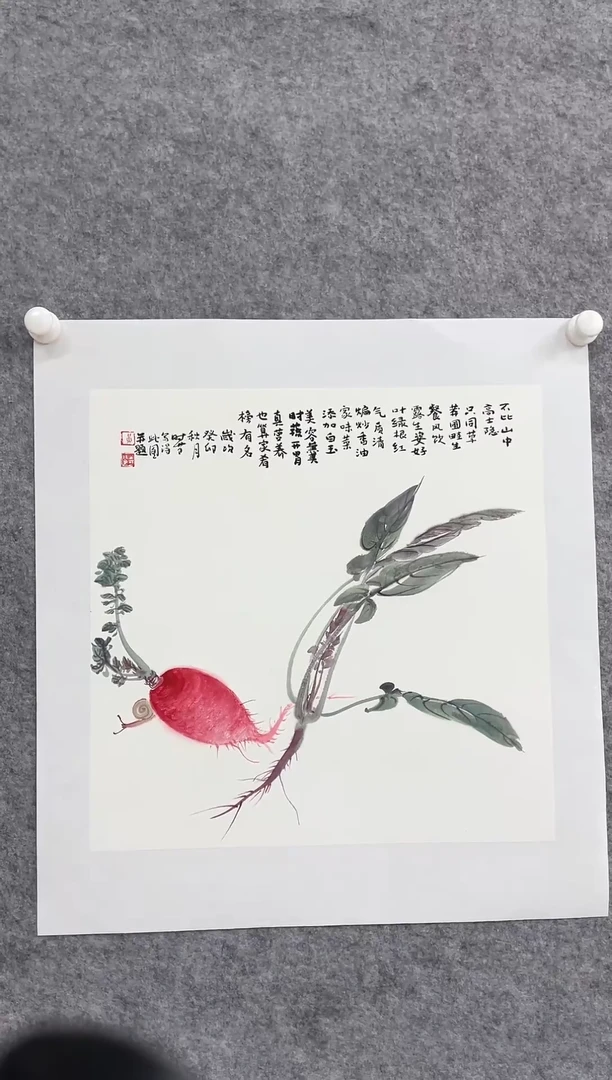 不比山中
高士隐
只同草
莽圃畦生
餐风饮
露生姿好
叶绿根红
气质清
煸炒香油
家味菜
添加白玉
美容羹
时蔬开胃
真营养
也算家肴
榜有名
岁次
癸卯
秋月
写得
此图
并题